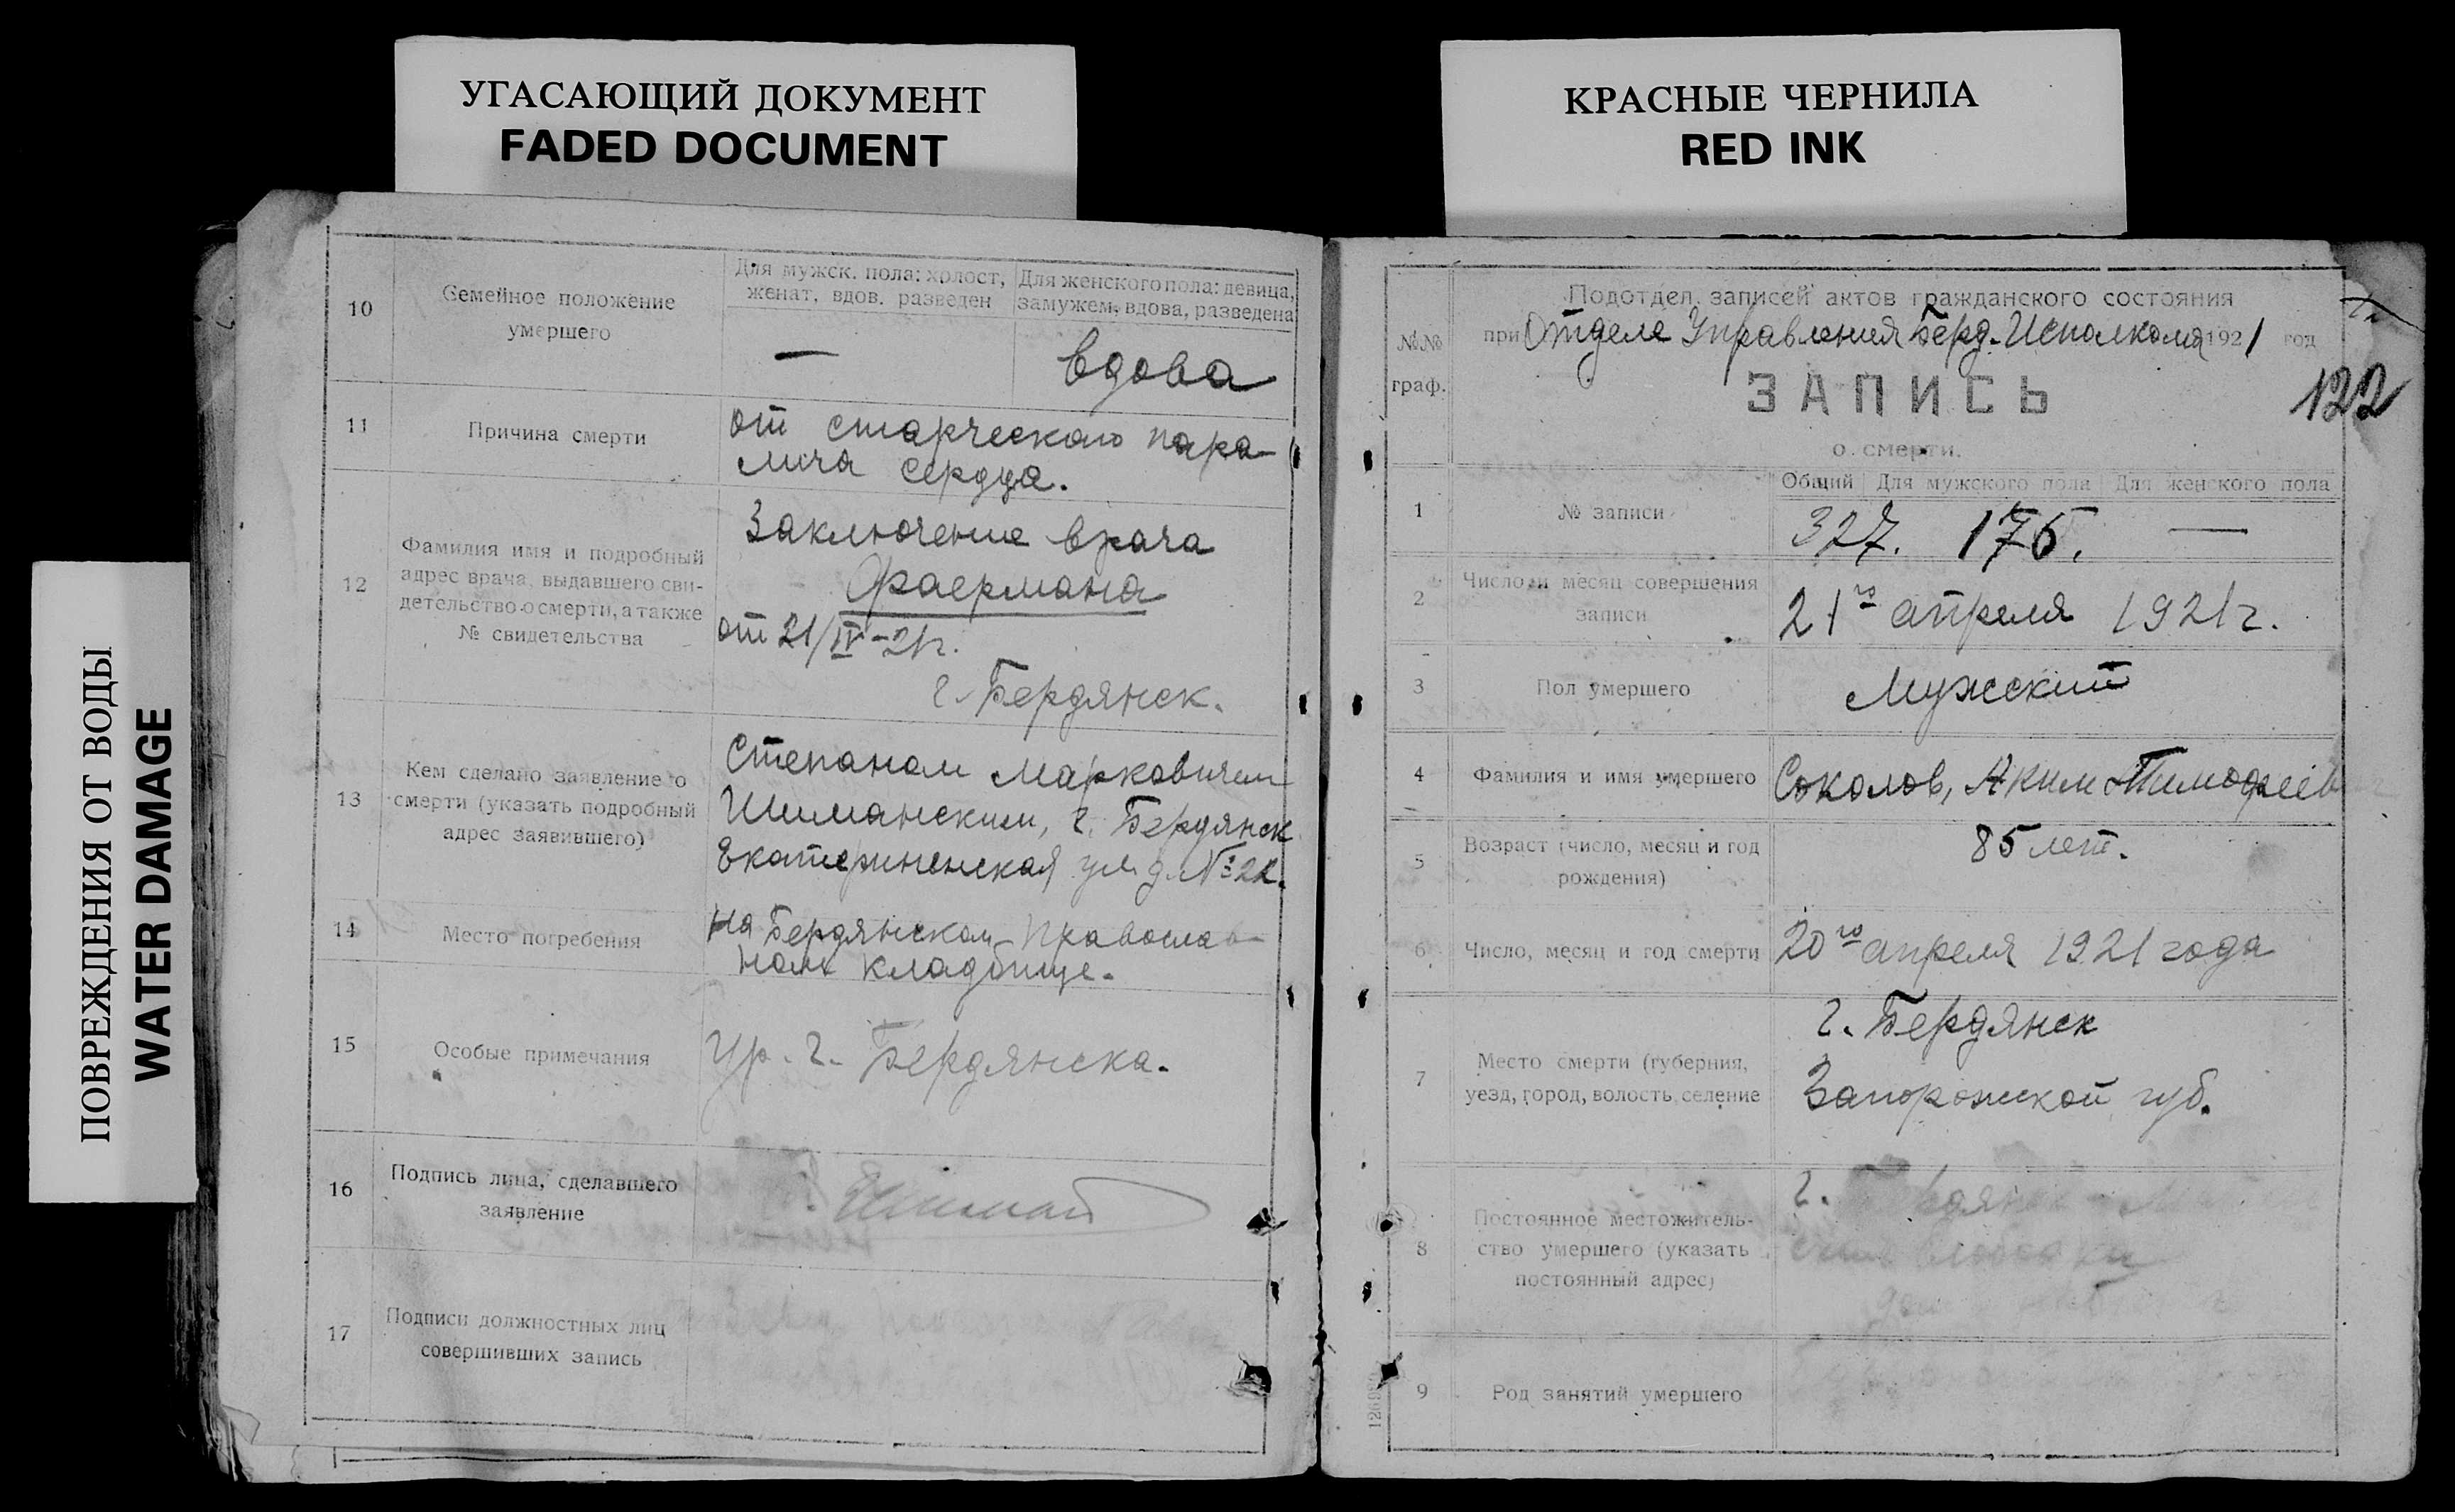 УГАСАЮЩИЙ ДОКУМЕНТ
FADED DOCUMENT
КРАСНЫЕ ЧЕРНИЛА
RED INK
ПОВРЕЖДЕНИЯ ОТ ВОДЫ
WATER DAMAGE
10
Семейное положение
умершего
Для мужск. пола: холост,
женат, вдов. разведен
Для женского пола: девица,
замужем, вдова, разведена
—
вдова
11
Причина смерти
от старческого пара-
лича сердца.
12
Фамилия имя и подробный
адрес врача, выдавшего сви-
детельство о смерти, а также
№ свидетельства
Заключение врача
Фаермана
от 21/IV-21г.
г. Бердянск.
13
Кем сделано заявление о
смерти (указать подробный
адрес заявившего)
Степаном Марковичем
Шиманским, г. Бердянск
Екатерининская ул. д. № 22.
14
Место погребения
на Бердянском Православ-
ном кладбище.
15
Особые примечания
Ур. г. Бердянска.
16
Подпись лица, сделавшего
заявление
17
Подписи должностных лиц
совершивших запись
№№
граф.
Подотдел записей актов гражданского состояния
при Отделе Управления Берд. Исполкома 1921 год
ЗАПИСЬ
о смерти.
122
1
№ записи
Общий Для мужского пола Для женского пола
327. 175. —
2
Число и месяц совершения
записи
21го апреля 1921 г.
3
Пол умершего
Мужской
4
Фамилия и имя умершего
Соколов, Аким Тимофеев
5
Возраст (число, месяц и год
рождения)
85 лет.
6
Число, месяц и год смерти
20го апреля 1921 года
7
Место смерти (губерния,
уезд, город, волость, селение
г. Бердянск
Запорожской губ.
8
Постоянное местожитель-
ство умершего (указать
постоянный адрес)
г.
9
Род занятий умершего